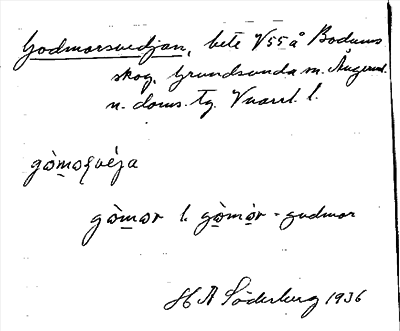 Godmorsvedjan, bete V55 å Bodums
skog, Grundsunda sn. Ångerml.
n. doms. tg. Vnorrl. l.
gòmosvéja
gòmor l. gòmòr = gudmor
H A Söderberg 1936